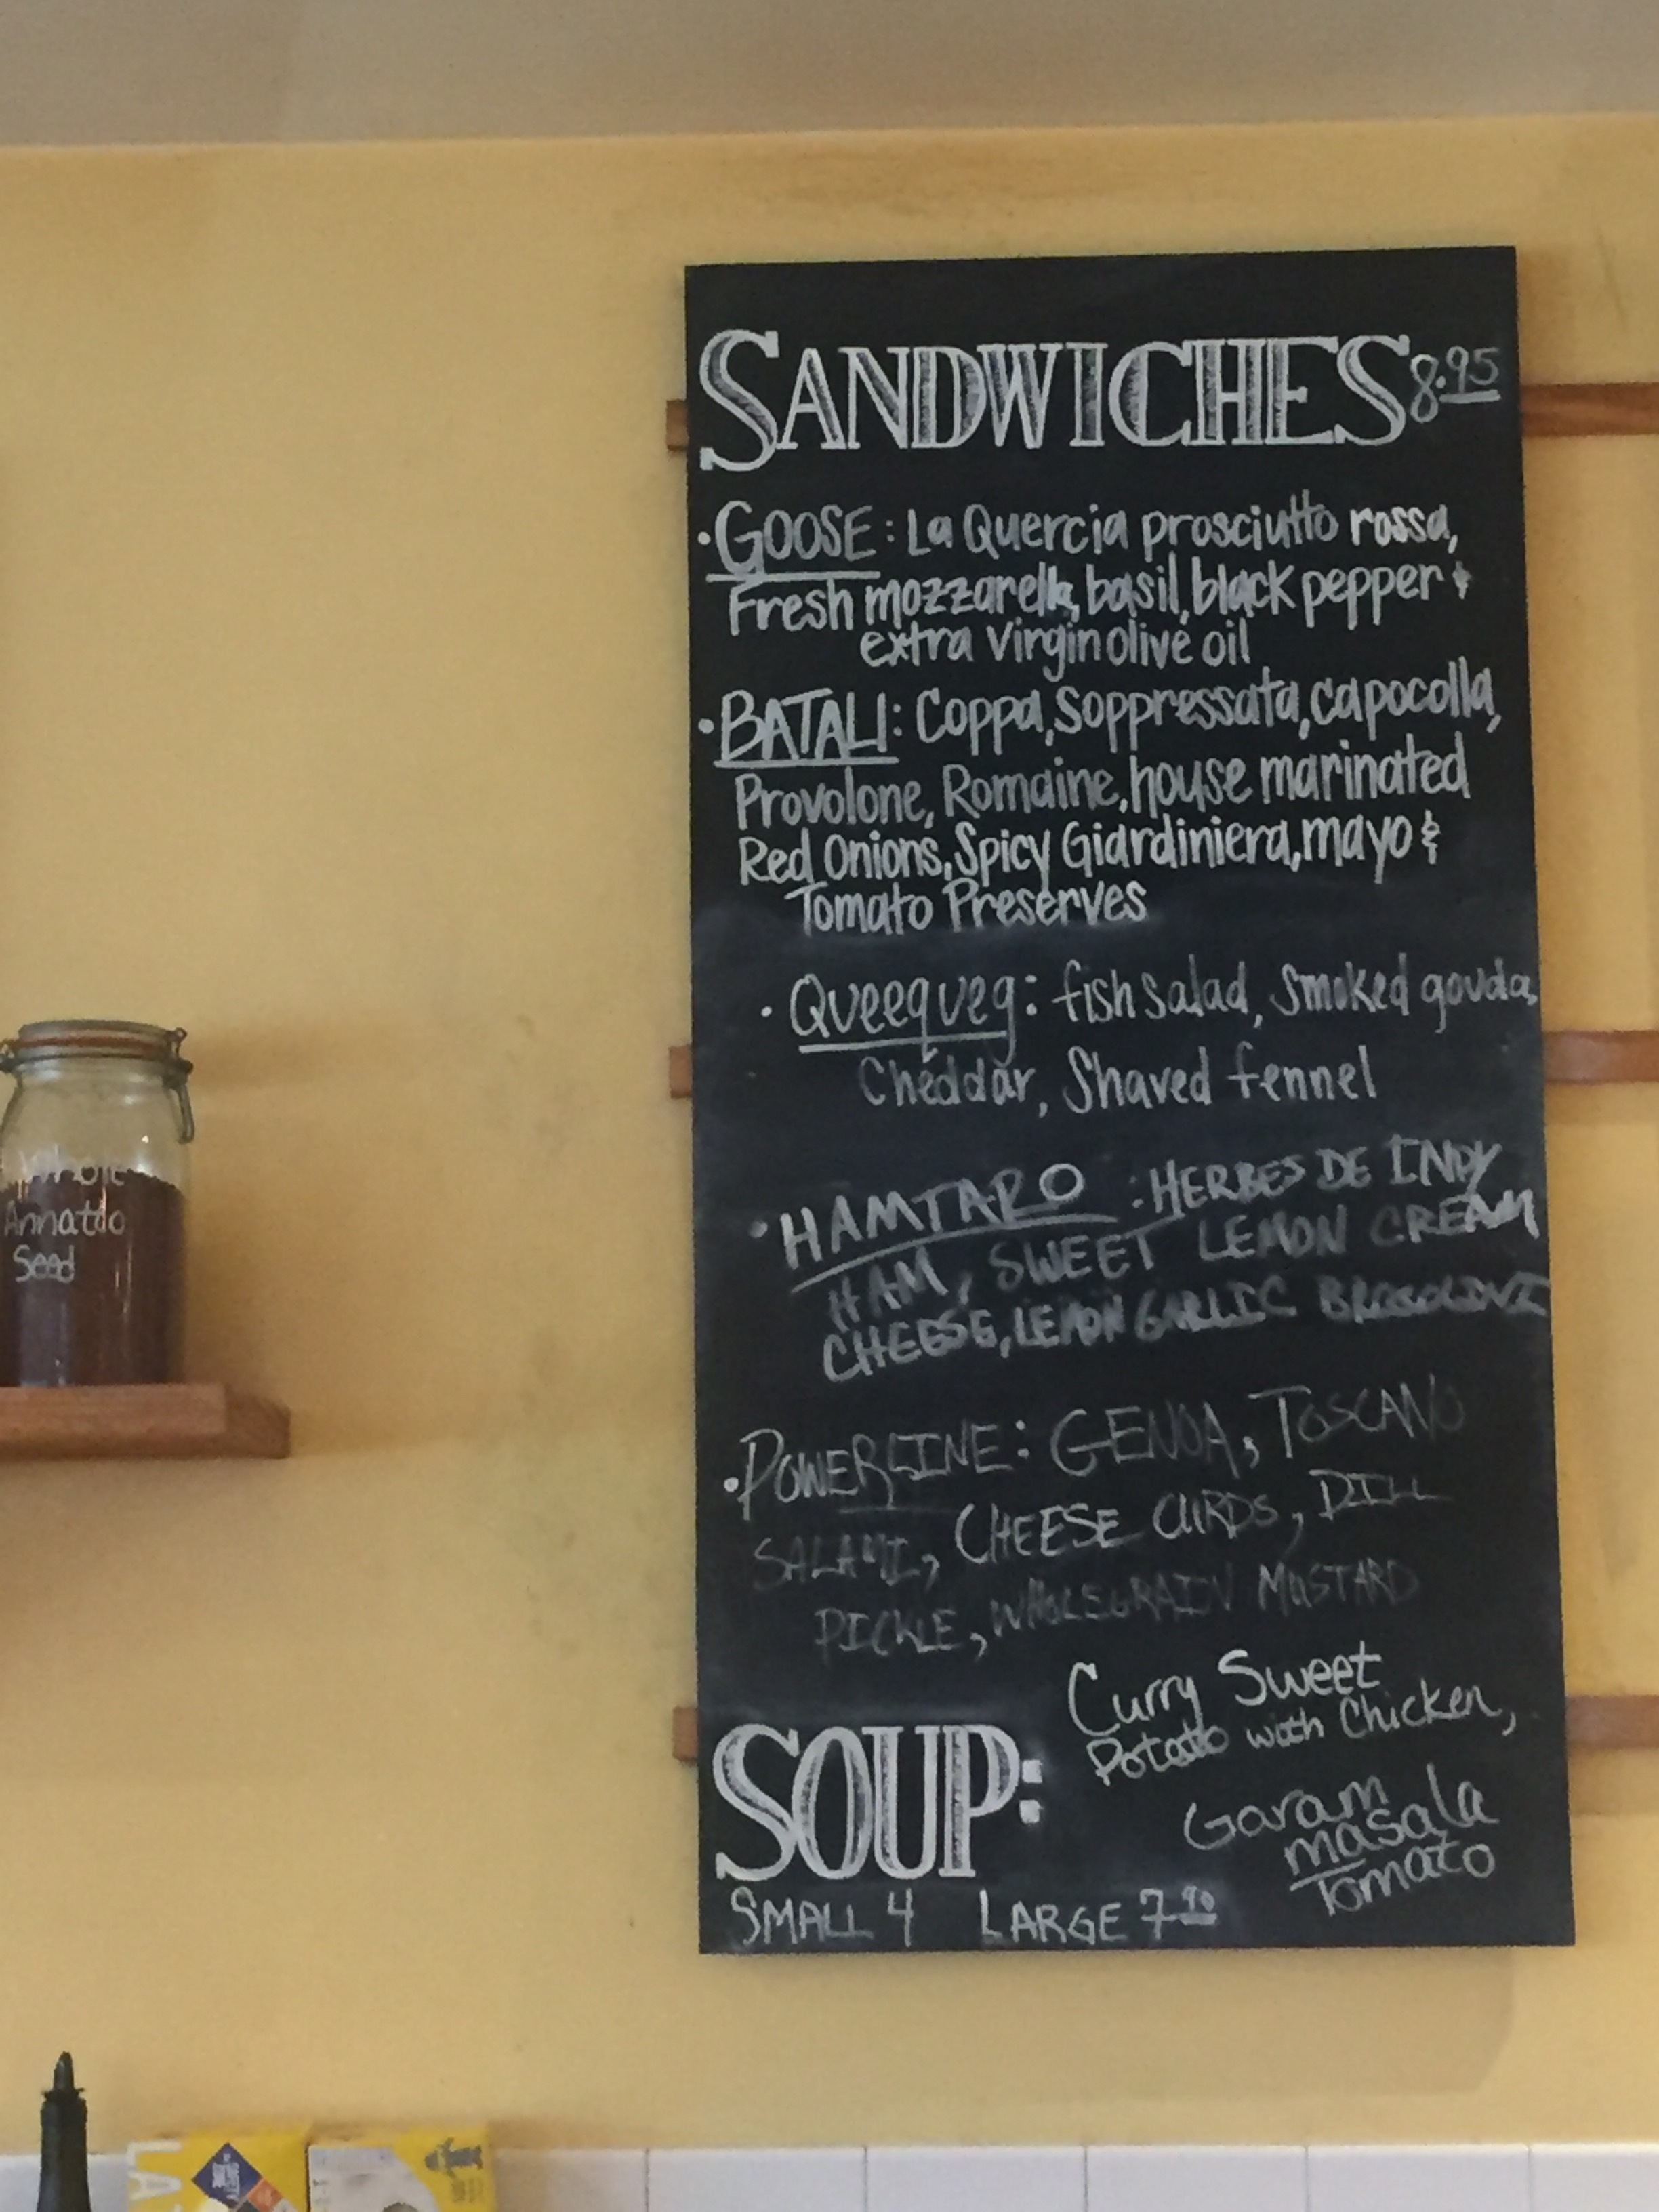 SANDWICHES 8.95
• GOOSE: La Quercia prosciutto rossa,
Fresh mozzarella, basil, black pepper &
extra virgin olive oil
• BATALI: Coppa, Soppressata, capocolla,
Provolone, Romaine, house marinated
Red Onions, Spicy Giardiniera, mayo &
Tomato Preserves
• Queequeg: fish salad, Smoked gouda,
Cheddar, Shaved fennel
• HAMTARO: HERBES DE INDY
HAM, SWEET LEMON CREAM
CHEESE, LEMON GARLIC BROCOLINI
• POWERLINE: GENOA, TOSCANO
SALAMI, CHEESE CURDS, DILL
PICKLE, WHOLEGRAIN MUSTARD
SOUP:
Curry Sweet
Potato with Chicken,
Garam
masala
Tomato
SMALL 4 LARGE 7.90
Whole
Annatto
Seed